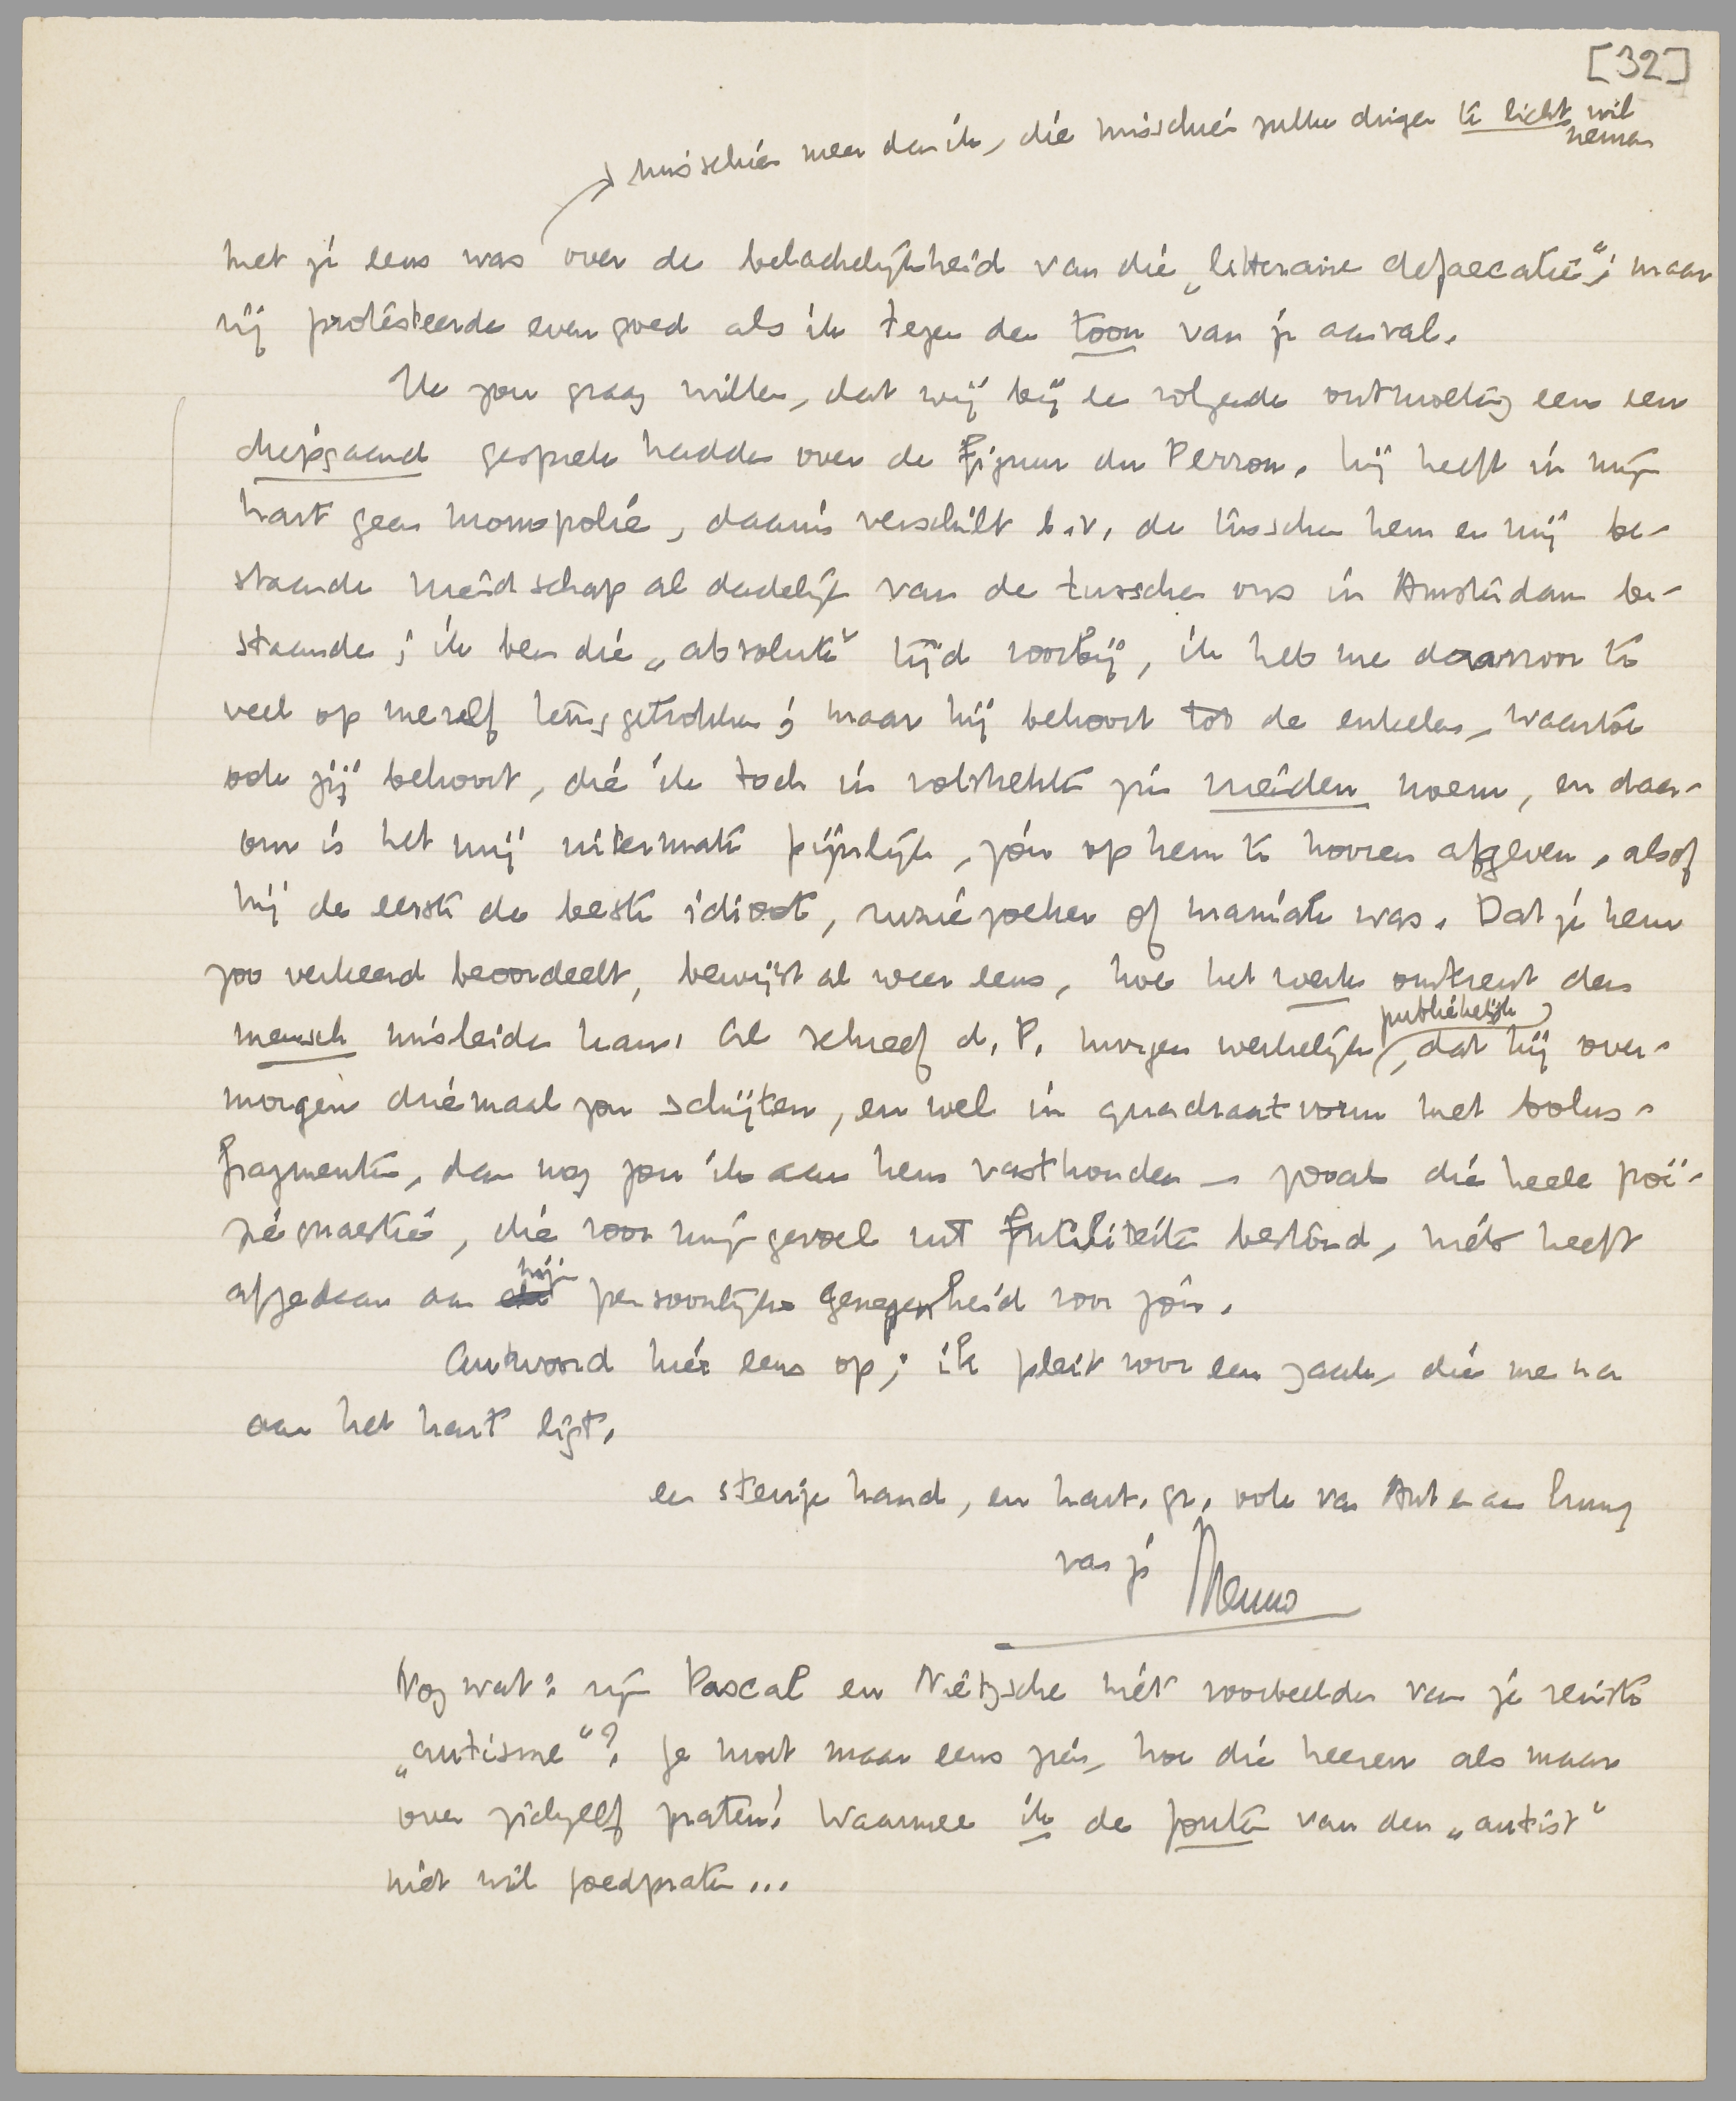 [32]
misschien meer dan ik, die misschien zulke dingen te licht wil
nemen
met je eens was over de belachelijkheid van die „litteraire defaecatie"; maar
zij protesteerde even goed als ik tegen den toon van je aanval.
Ik zou graag willen, dat wij bij een volgende ontmoeting eens een
diepgaand gesprek hadden over de figuur du Perron. Hij heeft in mijn
hart geen monopolie, daarin verschilt b.v. de tusschen hem en mij be-
staande vriendschap al dadelijk van de tusschen ons in Amsterdam be-
staande; ik ben die „absolute" tijd voorbij, ik heb me daarvoor te
veel op mezelf teruggetrokken; maar hij behoort tot de enkelen, waartoe
ook jij behoort, die ik toch in volstrekte zin vrienden noem, en daar-
om is het mij uitermate pijnlijk, jou op hem te hooren afgeven, alsof
hij de eerste de beste idioot, ruziezoeker of maniak was. Dat je hem
zoo verkeerd beoordeelt, bewijst al weer eens, hoe het werk omtrent den
mensch misleiden kan. Al schreef d. P. morgen werkelijk, dat hij over-
publiekelijk
morgen driemaal zou schijten, en wel in quadraatvorm met bolus-
fragmenten, dan nog zou ik aan hem vasthouden — zooals die heele poë-
zie quaestie, die voor mijn gevoel uit futiliteiten bestond, niets heeft
mijn
afgedaan aan persoonlijke genegenheid voor jou.
Antwoord hier eens op; ik pleit voor een zaak, die me na
aan het hart ligt.
een stevige hand, en hart. gr. ook van Ant en aan Truus
van je Menno
Nog wat: zijn Pascal en Nietzsche niet voorbeelden van je reinste
„autisme"? Je moet maar eens zien, hoe die heeren als maar
over zichzelf praten! Waarmee ik de fouten van den „autist"
niet wil goedpraten...